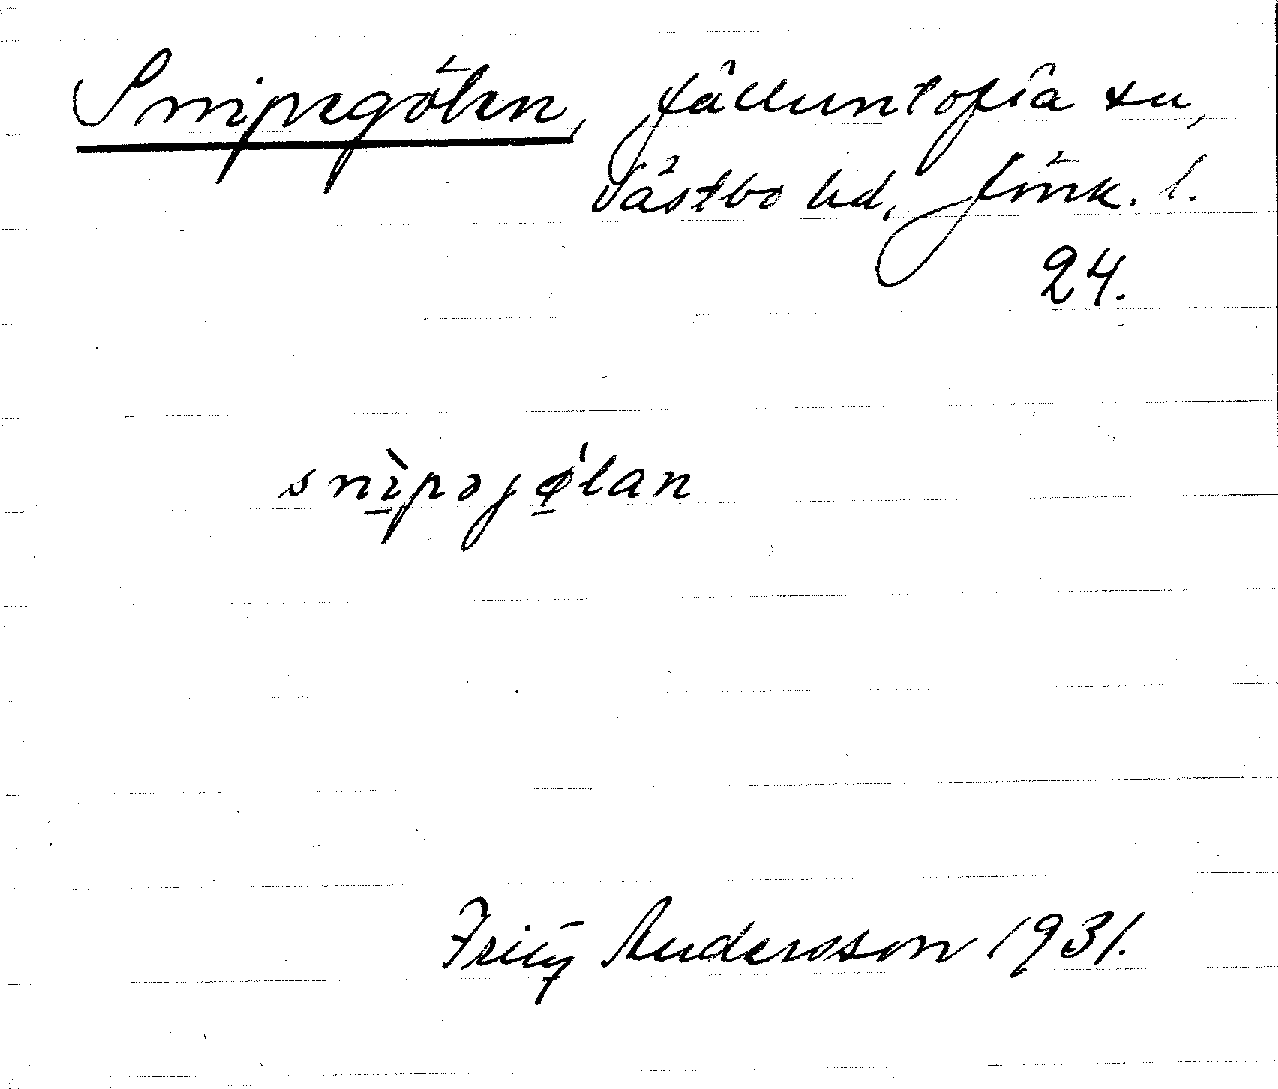 Snipegölen, Jälluntofta sn,
Västbo hd, Jönk. l.
24.
snìpəjǿlan
Fritz Andersson 1931.